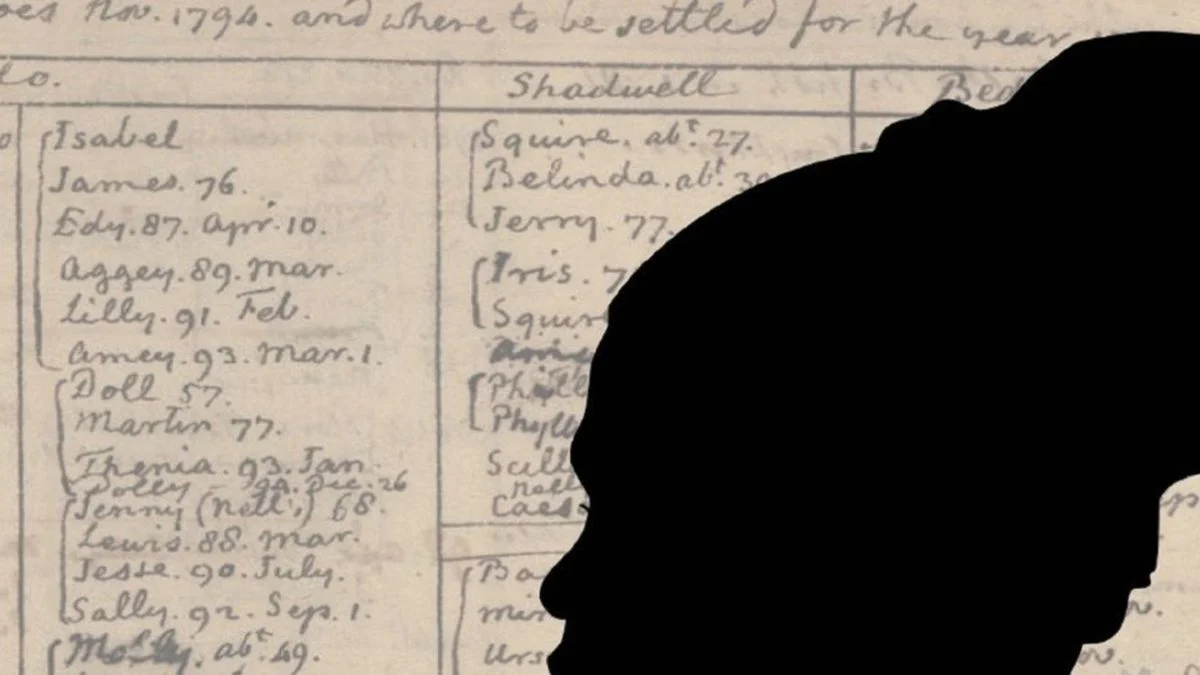 Nov. 1794. and where to be settled for the year
lo.
Isabel
James. 76.
Edy. 87. Apr. 10.
Aggey. 89. Mar.
Lilly. 91. Feb.
Amey. 93. Mar. 1.
Doll 57.
Martin 77.
Thenia. 93. Jan
Dolly – 94. Dec. 26
Jenny (Nell's) 68.
Lewis. 88. Mar.
Jesse. 90. July.
Sally. 92. Sep. 1.
abt. 49.
Shadwell
Squire. abt. 27.
Belinda. abt. 39
Jerry. 77.
Iris. 7
Squir
Phyll
Caes
Ba
min
Urs
Bed